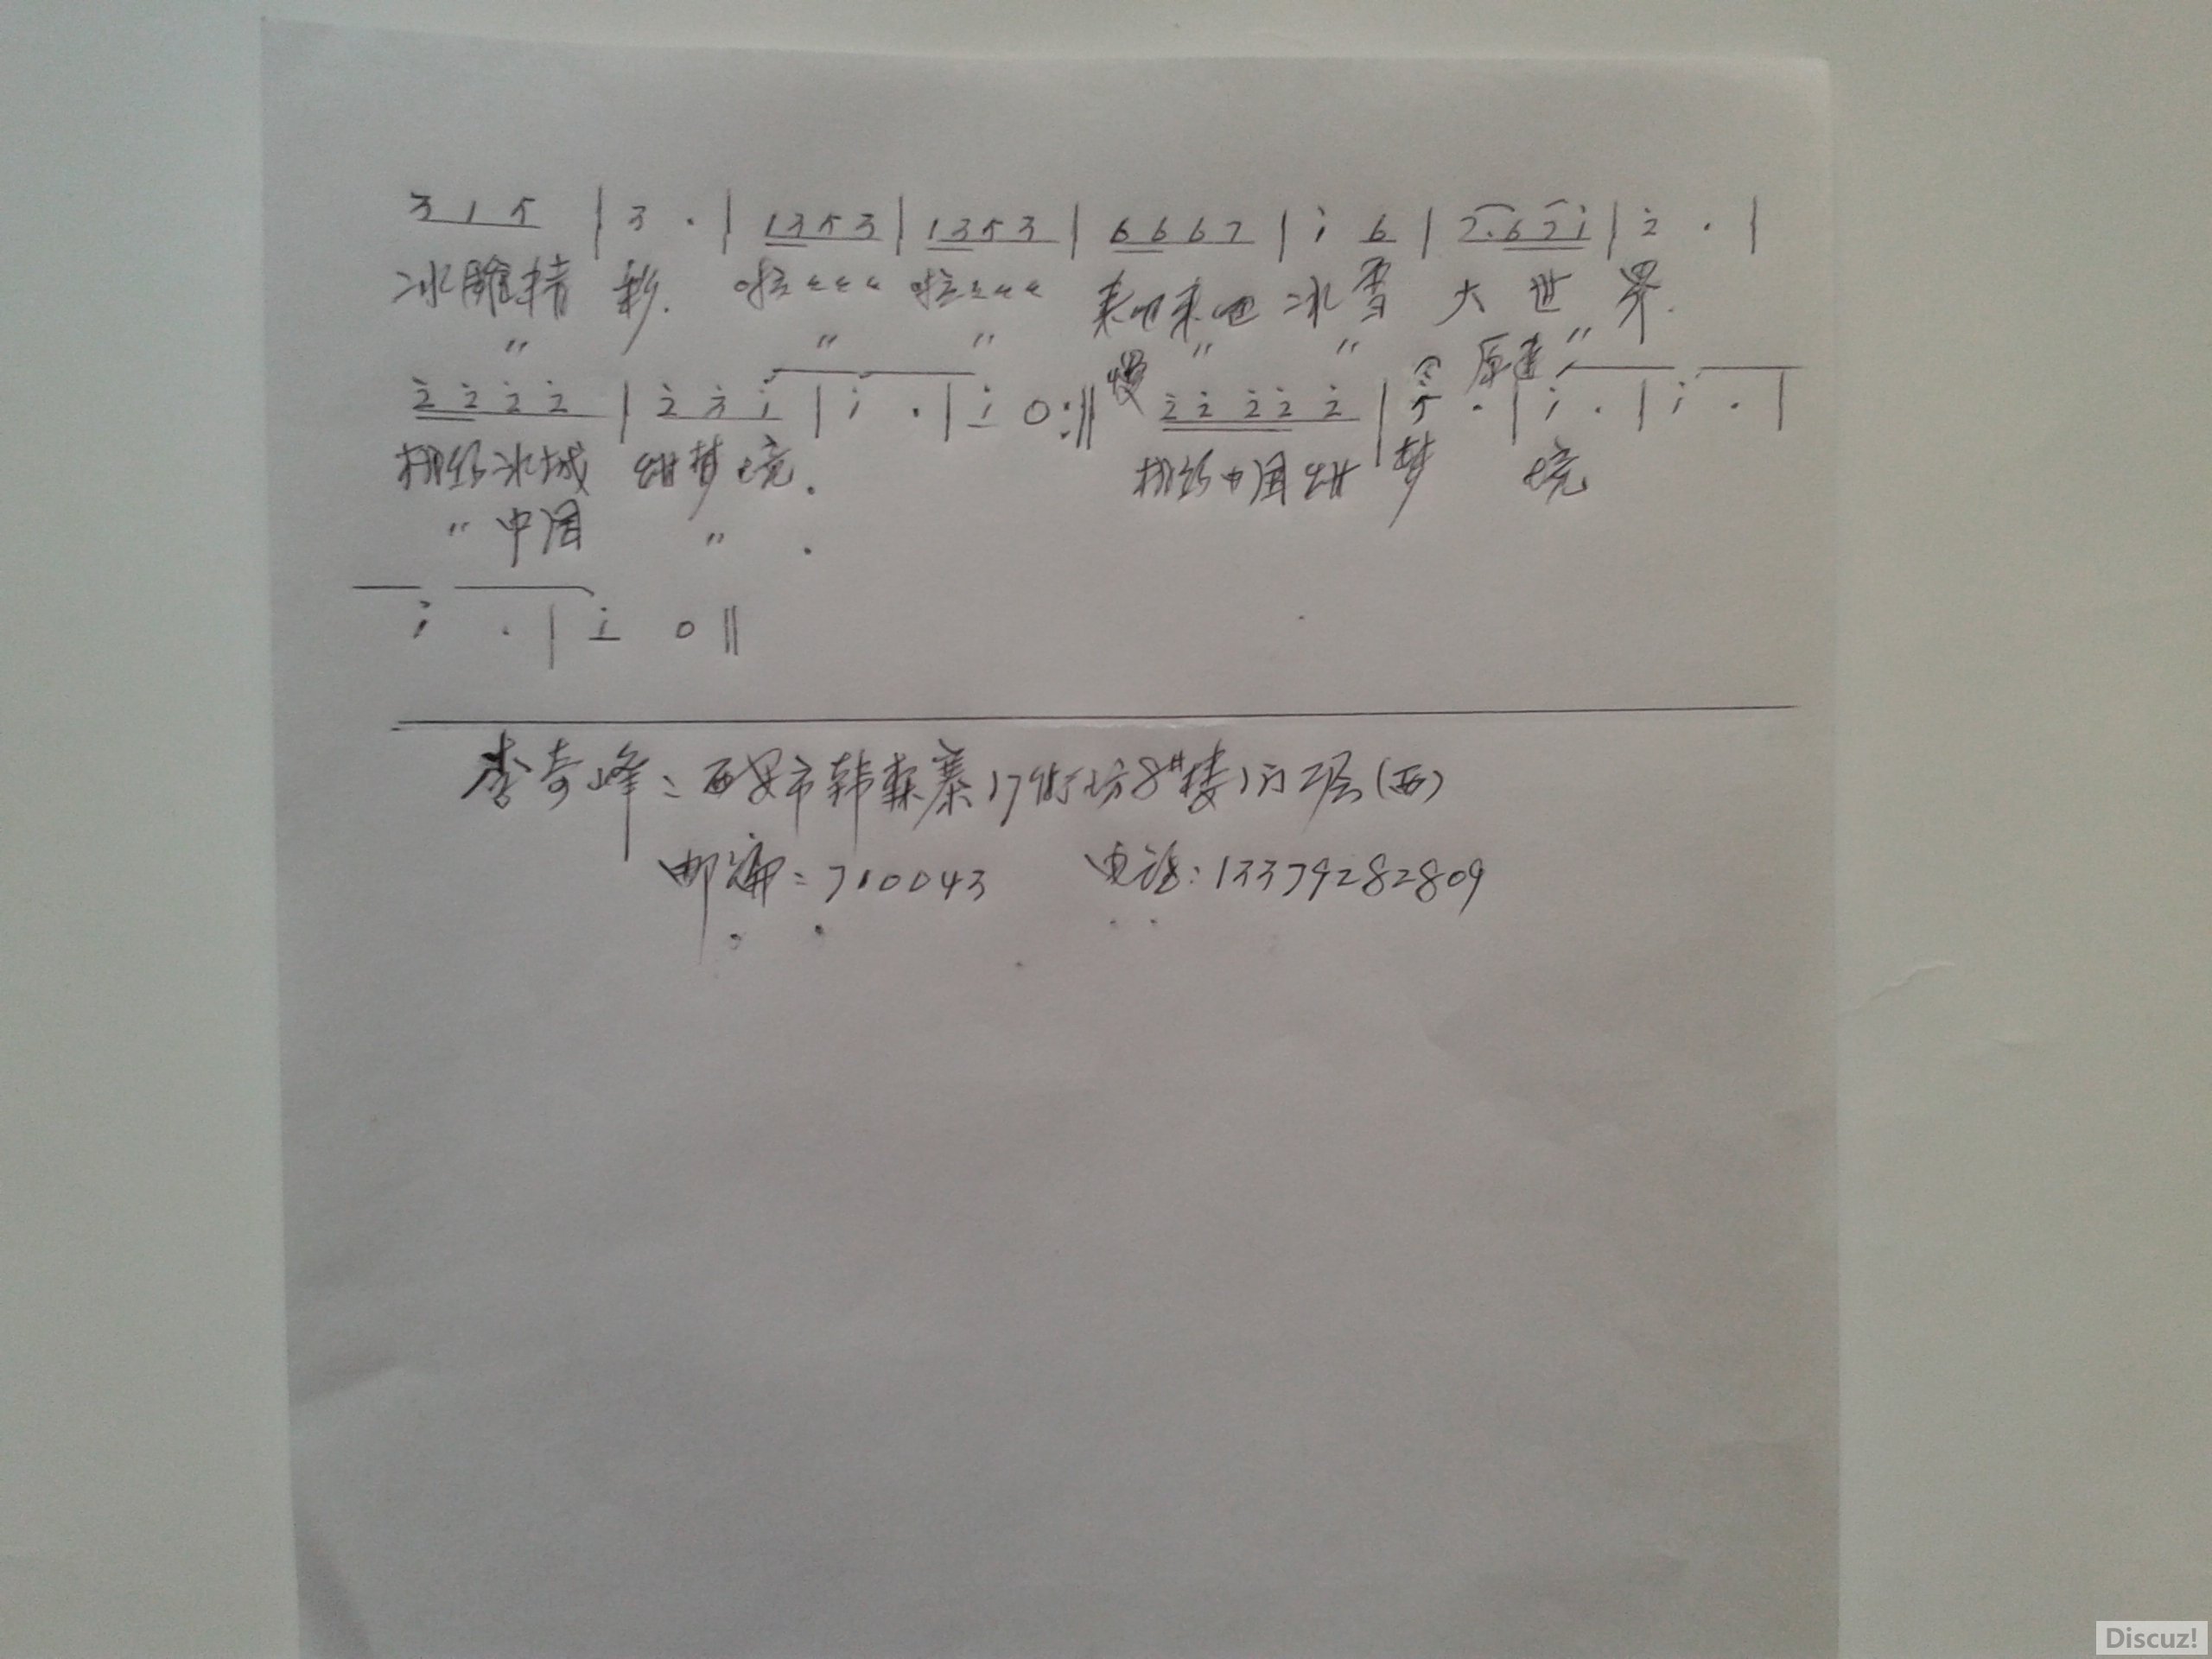 3 1 5 | 3 . | 1 3 5 3 | 1 3 5 3 | 6 6 6 7 | i 6 | 7. 6 7 i | 2 . |
冰雕精 彩. 啦〃〃〃 啦〃〃〃 来吧来吧 冰雪 大 世 界.
〃 〃 〃 〃 〃 〃
慢 原速
2 2 2 2 | 2 3 i | i . | i 0 :|| 2 2 2 2 2 | 5 . | i . | i . |
冰城 甜梦境. 中国甜 梦 境
〃 中国 〃 .
i . | i 0 ||
李奇峰: 西安市韩森寨17街坊8#楼1门2层(西)
邮编: 710043 电话: 13379282809
Discuz!